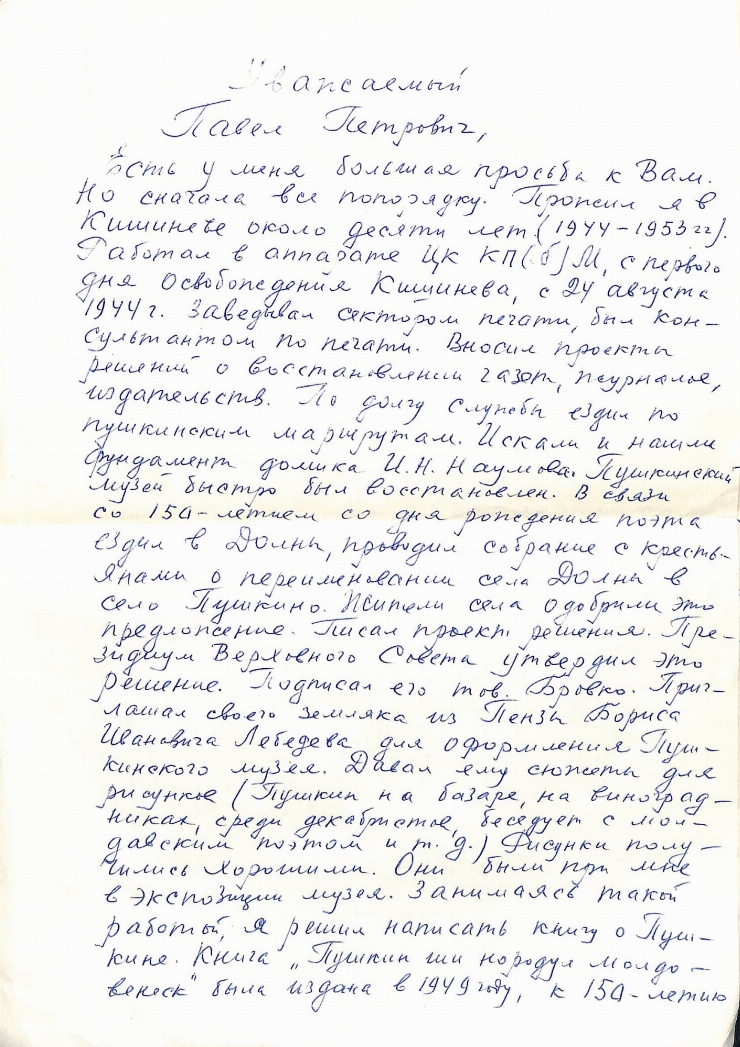 Уважаемый
Павел Петрович,
Есть у меня большая просьба к Вам.
Но сначала все попорядку. Прожил я в
Кишиневе около десяти лет (1944-1953 гг).
Работал в аппарате ЦК КП(б)М, с первого
дня Освобождения Кишинева, с 24 августа
1944 г. Заведывал сектором печати, был кон-
сультантом по печати. Вносил проекты
решений о восстановлении газет, журналов,
издательств. По долгу службы ездил по
пушкинским маршрутам. Искали и нашли
фундамент домика И.Н. Наумова. Пушкинский
музей быстро был восстановлен. В связи
со 150-летием со дня рождения поэта
ездил в Долны, проводил собрание с кресть-
янами о переименовании села Долны в
село Пушкино. Жители села одобрили это
предложение. Писал проект решения. Пре-
зидиум Верховного Совета утвердил это
решение. Подписал его тов. Бровко. Приг-
лашал своего земляка из Пензы Бориса
Ивановича Лебедева для оформления Пуш-
кинского музея. Давал ему сюжеты для
рисунков (Пушкин на базаре, на виноград-
никах, среди декабристов, беседует с мол-
давским поэтом и т.д.) Рисунки полу-
чились хорошими. Они были при мне
в экспозиции музея. Занимаясь такой
работой, я решил написать книгу о Пуш-
кине. Книга „Пушкин ши нородул молдо-
венеск" была издана в 1949 году, к 150-летию